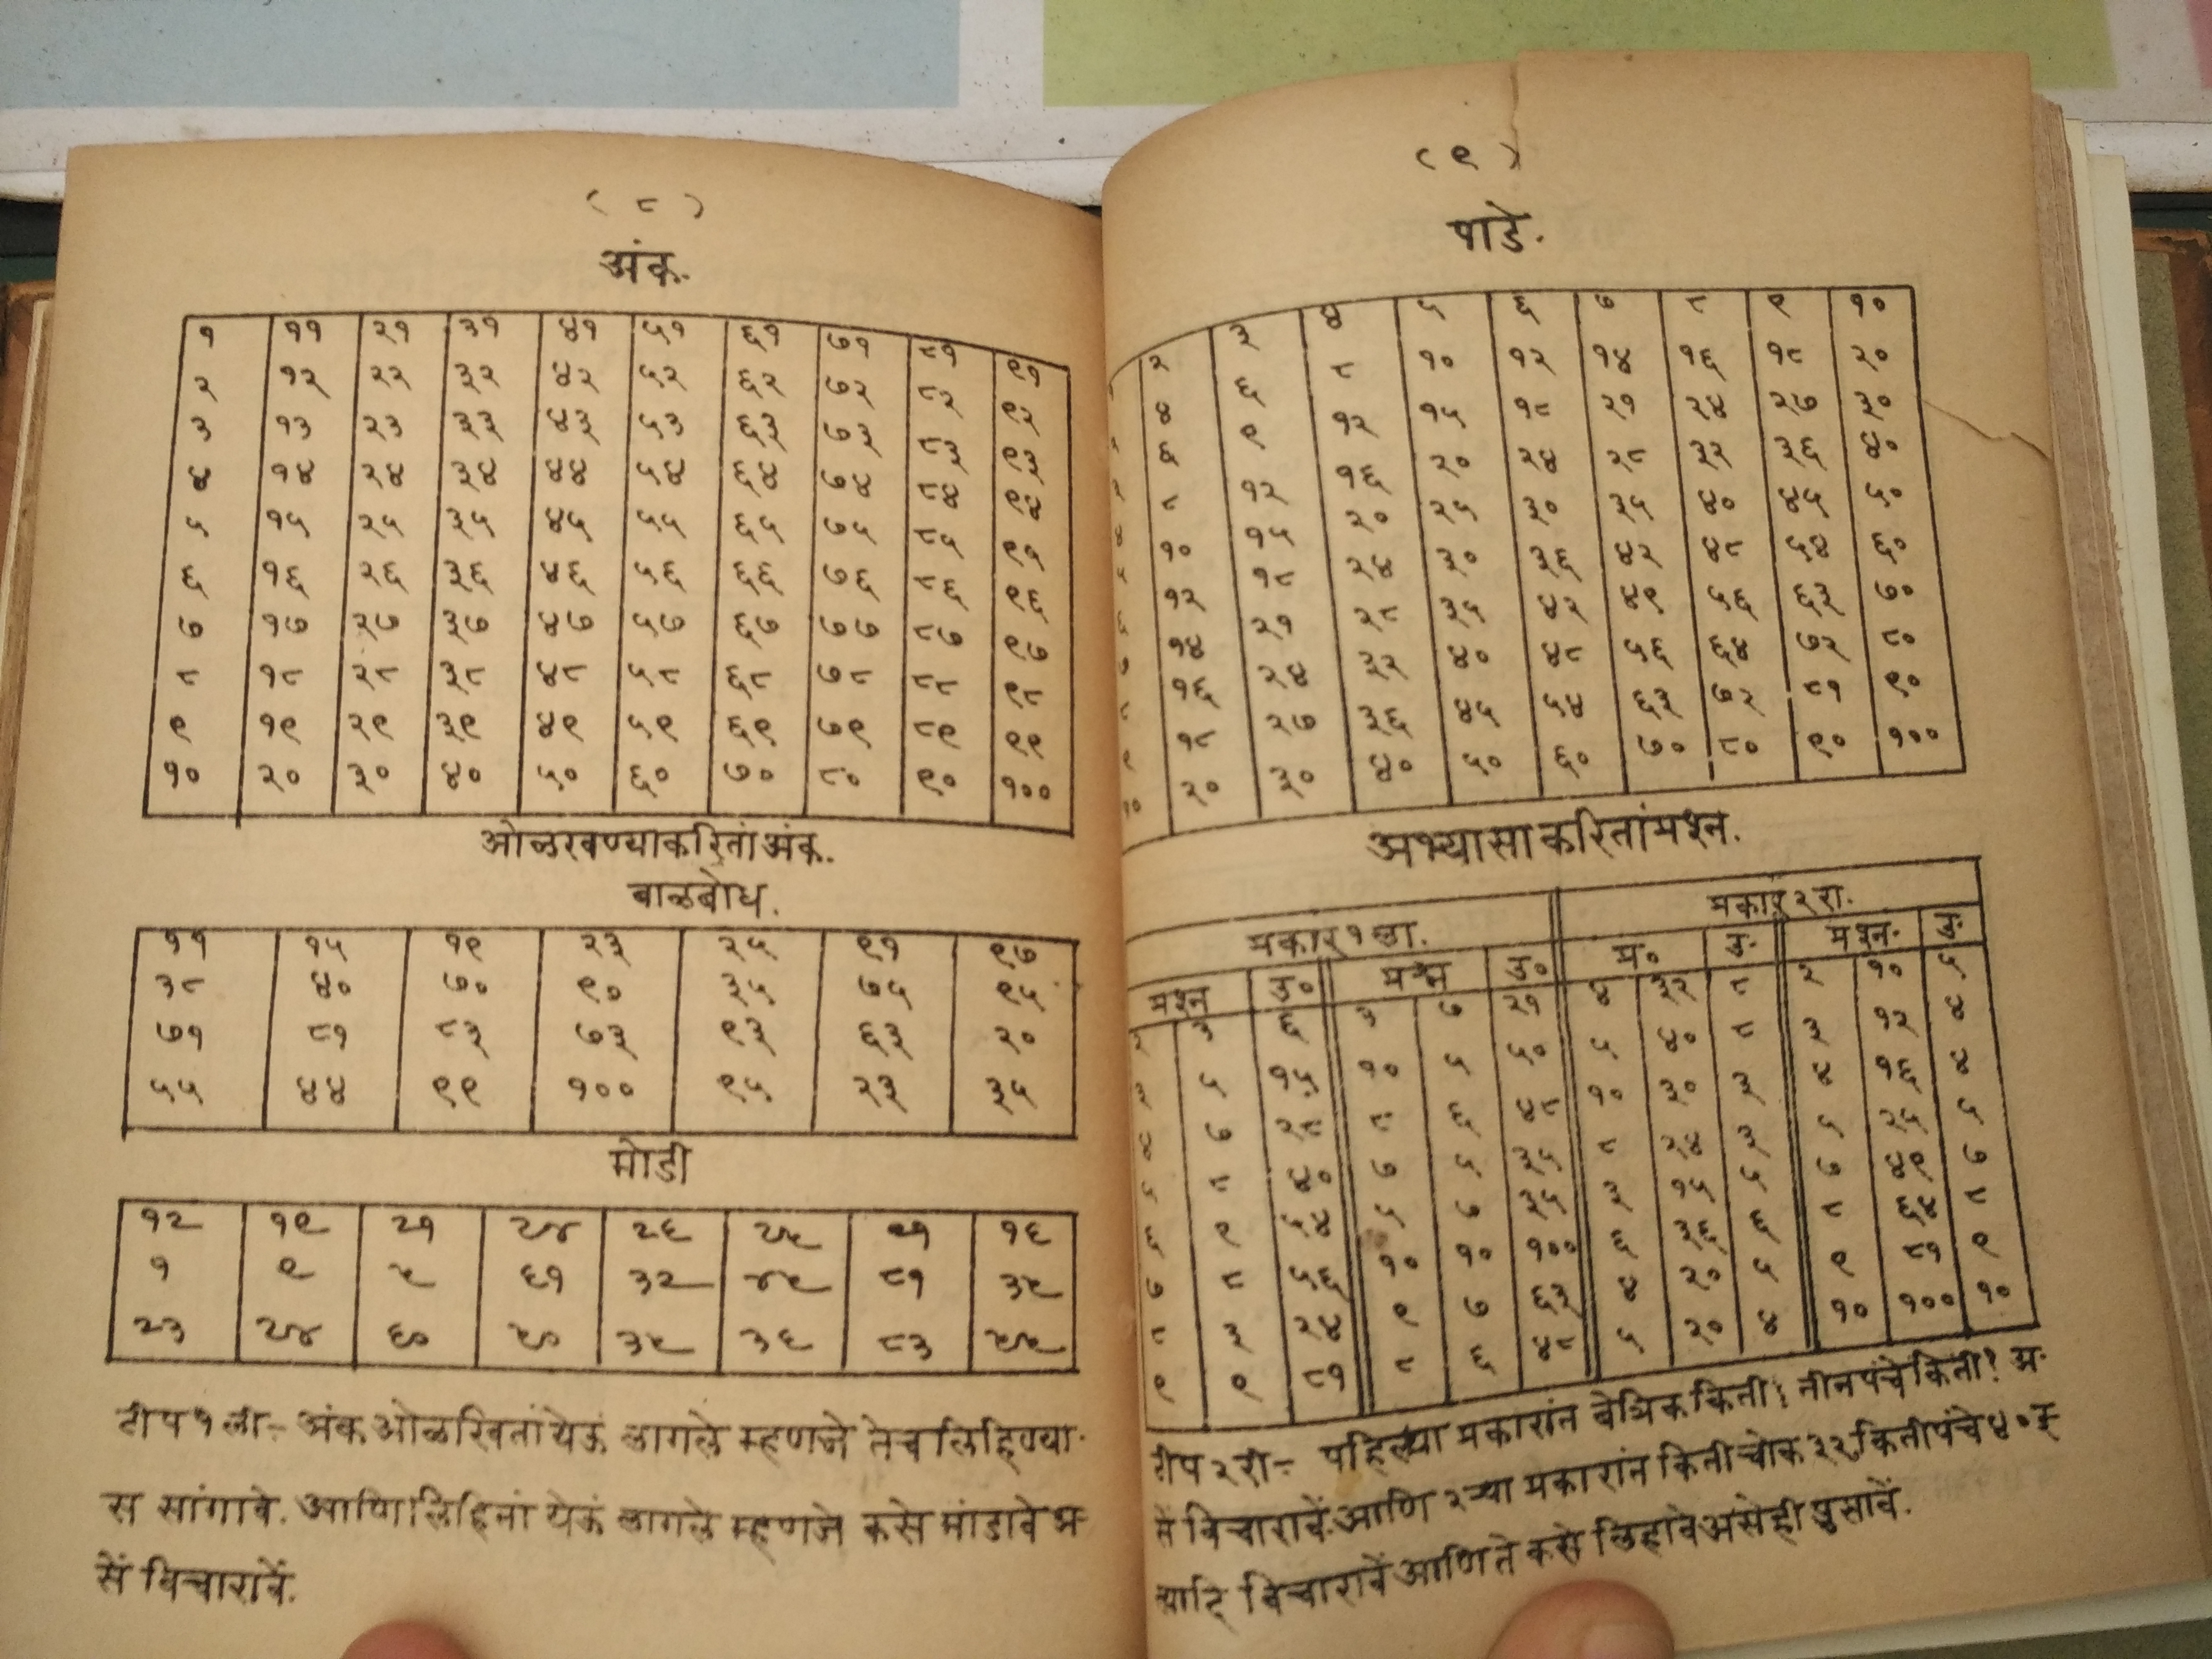 ( ८ )
अंक.
१ ११ २१ ३१ ४१ ५१ ६१ ७१ ८१ ९१
२ १२ २२ ३२ ४२ ५२ ६२ ७२ ८२ ९२
३ १३ २३ ३३ ४३ ५३ ६३ ७३ ८३ ९३
४ १४ २४ ३४ ४४ ५४ ६४ ७४ ८४ ९४
५ १५ २५ ३५ ४५ ५५ ६५ ७५ ८५ ९५
६ १६ २६ ३६ ४६ ५६ ६६ ७६ ८६ ९६
७ १७ २७ ३७ ४७ ५७ ६७ ७७ ८७ ९७
८ १८ २८ ३८ ४८ ५८ ६८ ७८ ८८ ९८
९ १९ २९ ३९ ४९ ५९ ६९ ७९ ८९ ९९
१० २० ३० ४० ५० ६० ७० ८० ९० १००
ओळखण्याकरितां अंक.
बाळबोध.
११ १५ १९ २३ २५ ९१ ९७
३८ ४० ७० ९० ३५ ७५ ९५
७१ ८१ ८३ ७३ ९३ ६३ २०
५५ ४४ ९९ १०० ९५ २३ ३५
मोडी
१२ १९ २१ २४ २६ २५ २१ १६
१ ९ ५ ६१ ३२ ४५ ८१ ३५
२३ २४ ६० ५० ३५ ३६ ८३ ५५
टीप १ ली- अंक ओळखितां येऊं लागले म्हणजे तेच लिहिण्या-
स सांगावे. आणि लिहितां येऊं लागले म्हणजे कसे मांडावे अ-
सें विचारावें.
( ९ )
पाडे.
२ ३ ४ ५ ६ ७ ८ ९ १०
४ ६ ८ १० १२ १४ १६ १८ २०
६ ९ १२ १५ १८ २१ २४ २७ ३०
८ १२ १६ २० २४ २८ ३२ ३६ ४०
१० १५ २० २५ ३० ३५ ४० ४५ ५०
१२ १८ २४ ३० ३६ ४२ ४८ ५४ ६०
१४ २१ २८ ३५ ४२ ४९ ५६ ६३ ७०
१६ २४ ३२ ४० ४८ ५६ ६४ ७२ ८०
१८ २७ ३६ ४५ ५४ ६३ ७२ ८१ ९०
१० २० ३० ४० ५० ६० ७० ८० ९० १००
अभ्यासाकरितां प्रश्न.
प्रकार १ ला. प्रकार २ रा.
प्रश्न उ० प्रश्न उ० प्र० उ. प्रश्न. उ.
२ ३ ६ ३ ७ २१ ४ ३२ ८ २ १० ५
३ ५ १५ १० ५ ५० ५ ४० ८ ३ १२ ४
४ ७ २८ ८ ६ ४८ १० ३० ३ ४ १६ ४
५ ८ ४० ७ ५ ३५ ८ २४ ३ ५ २५ ५
६ ९ ५४ ५ ७ ३५ ३ १५ ५ ७ ४९ ७
७ ८ ५६ १० १० १०० ६ ३६ ६ ८ ६४ ८
८ ३ २४ ९ ७ ६३ ४ २० ५ ९ ८१ ९
९ ९ ८१ ८ ६ ४८ ५ २० ४ १० १०० १०
टीप २ री- पहिल्या प्रकारांत बेत्रिक किती; तीनपंचे किती! अ-
सें विचारावें. आणि २ऱ्या प्रकारांत किती चोक ३२, किती पंचे ४० इ-
त्यादि विचारावें आणि ते कसे लिहावे असेही पुसावें.